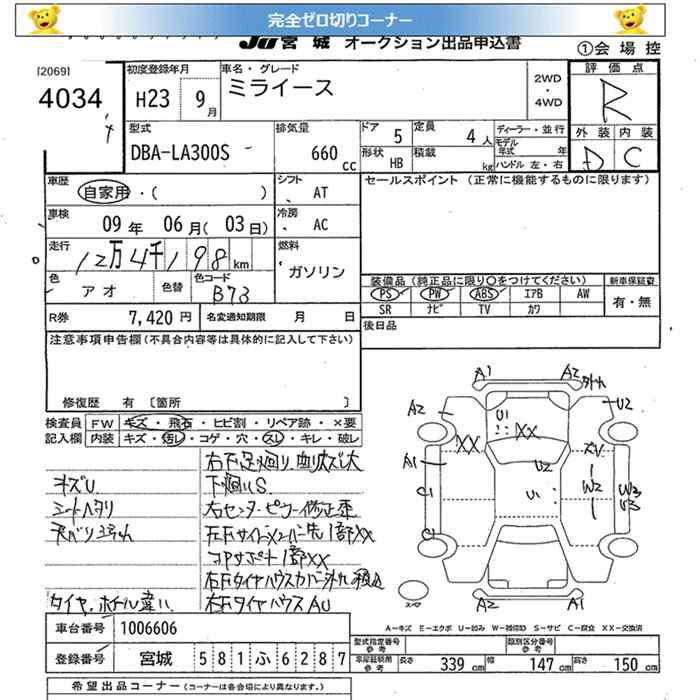 完全ゼロ切りコーナー
JU 宮城 オークション出品申込書
①会場控
[2069]
4034
初度登録年月
H23 9月
車名・グレード
ミライース
2WD
・
4WD
評価点
R
型式
DBA-LA300S
排気量
660 cc
ドア 5
定員 4 人
形状 HB
積載 kg
ディーラー・並行
モデル年式 年
ハンドル 左・右
外装 内装
D C
車歴
自家用・( )
シフト
AT
セールスポイント (正常に機能するものに限ります)
車検
09 年 06 月( 03 日)
冷房
AC
走行
12万4千198 km
燃料
ガソリン
色
アオ
色替
色コード
B73
装備品 (純正品に限り○をつけてください)
新車保証書
PS PW ABS エアB AW
SR ナビ TV カワ
有・無
R券 7,420 円
名変通知期限 月 日
後日品
注意事項申告欄(不具合内容等は具体的に記入して下さい)
修復歴 有 〔箇所 〕
検査員記入欄
FW キズ・飛石・ヒビ割・リペア跡・×要
内装 キズ・汚レ・コゲ・穴・スレ・キレ・破レ
右下足廻り、曲り大
キズU 下廻りS
シートヘタリ 右センターピラー修正歪
右Fタイヤハウスカバー外れ
タイヤ、ホイール違い 右Fタイヤハウス AU
A1 A2
A2 U1 U2
XX XX
A1 U2 XV
W2 W3
U1 U3
C1
C
スペア
A2 A1
A-キズ E-エクボ U-凹み W-補修跡 S-サビ C-腐食 XX-交換済
車台番号 1006606
登録番号 宮城 581 ふ 6287
型式指定番号 参考
類別区分番号 参考
車庫証明用 参考 長さ 339 cm 幅 147 cm 高さ 150 cm
希望出品コーナー (コーナーは各会場により異なります。)